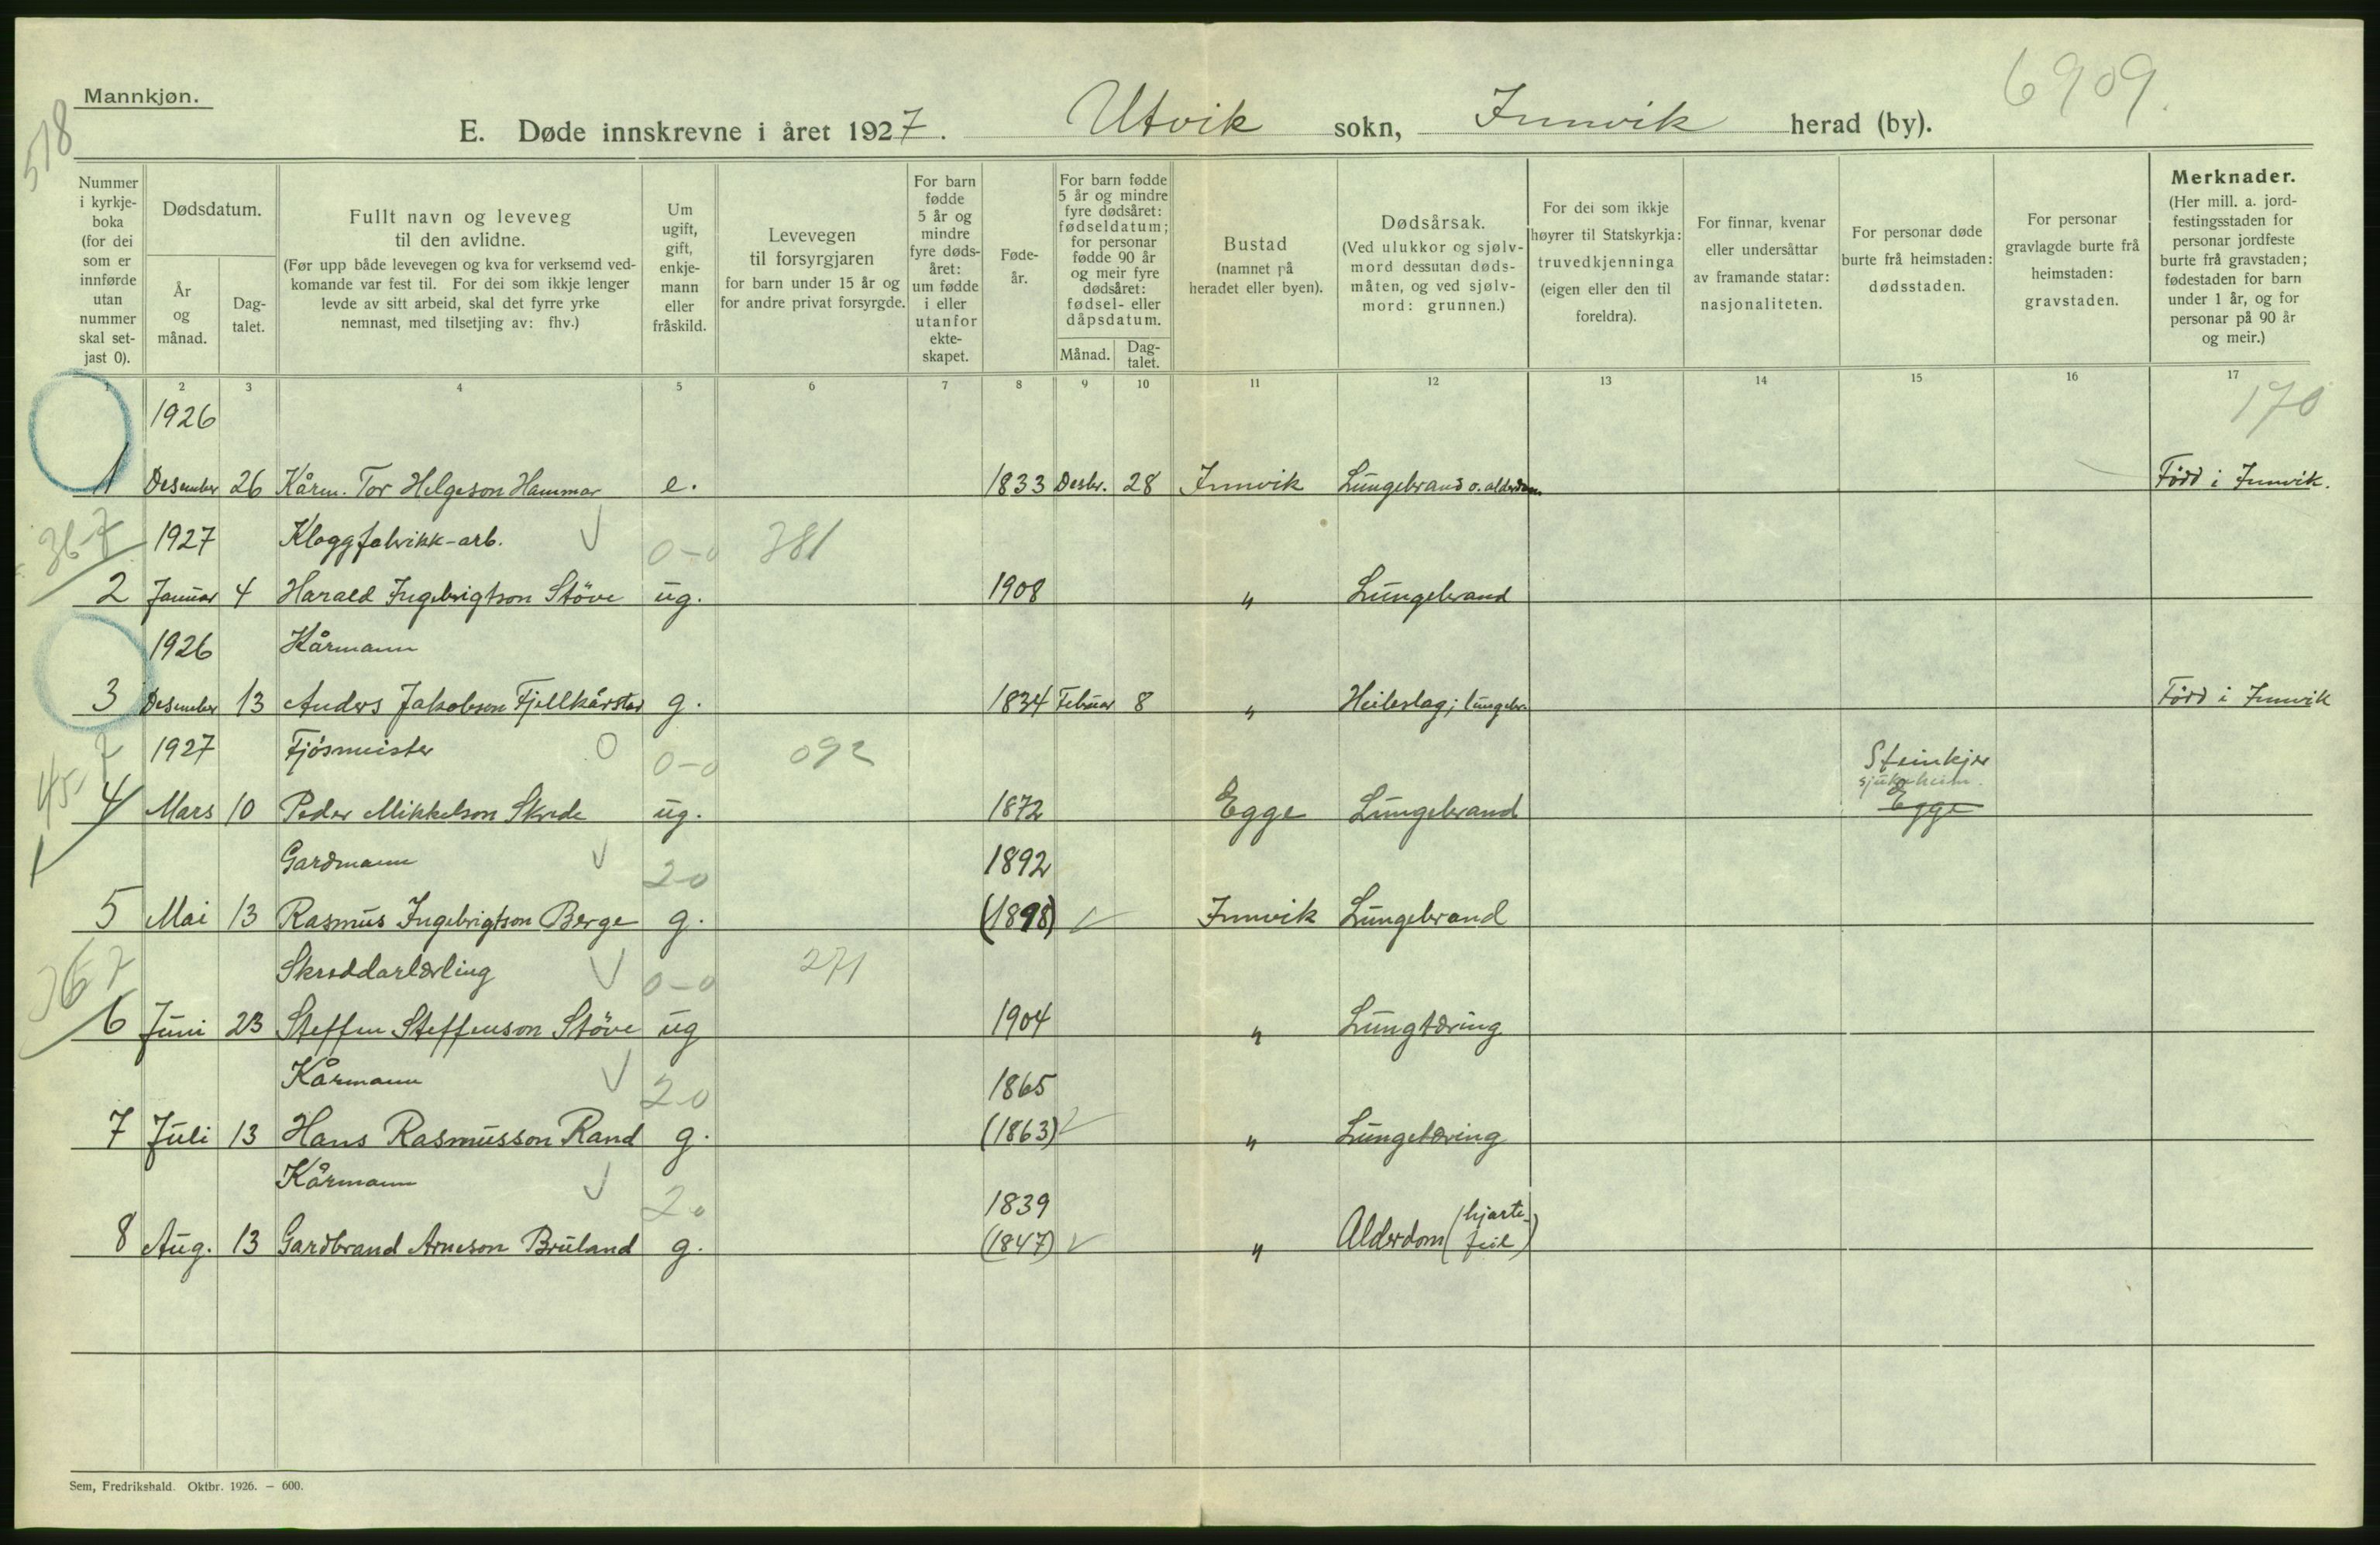 Mannkjøn.
6909.
578
E. Døde innskrevne i året 1927. Utvik sokn, Innvik herad (by).
Nummer i kyrkje-boka (for dei som er innførde utan nummer skal set-jast 0).
Dødsdatum.
År og månad.
Dag-talet.
Fullt navn og leveveg til den avlidne.
(Før upp både levevegen og kva for verksemd ved-komande var fest til. For dei som ikkje lenger levde av sitt arbeid, skal det fyrre yrke nemnast, med tilsetjing av: fhv.)
Um ugift, gift, enkje-mann eller fråskild.
Levevegen til forsyrgjaren for barn under 15 år og for andre privat forsyrgde.
For barn fødde 5 år og mindre fyre døds-året: um fødde i eller utanfor ekte-skapet.
Føde-år.
For barn fødde 5 år og mindre fyre dødsåret: fødseldatum; for personar fødde 90 år og meir fyre dødsåret: fødsel- eller dåpsdatum.
Månad.
Dag-talet.
Bustad (namnet på heradet eller byen).
Dødsårsak.
(Ved ulukkor og sjølv-mord dessutan døds-måten, og ved sjølv-mord: grunnen.)
For dei som ikkje høyrer til Statskyrkja: truvedkjenninga (eigen eller den til foreldra).
For finnar, kvenar eller undersåttar av framande statar: nasjonaliteten.
For personar døde burte frå heimstaden: dødsstaden.
For personar gravlagde burte frå heimstaden: gravstaden.
Merknader.
(Her mill. a. jord-festingsstaden for personar jordfeste burte frå gravstaden; fødestaden for barn under 1 år, og for personar på 90 år og meir.)
1 2 3 4 5 6 7 8 9 10 11 12 13 14 15 16 17
1926 170
1 Desember 26 Kårm. Tor Helgeson Hammar e. 1833 Desbr. 28 Innvik Lungebrand o. alderdom Född i Innvik.
367 1927 Kloggfabrikk-arb. 0-0 381
2 Januar 4 Harald Ingebrigtson Störe ug. 1908 " Lungebrand
1926 Kårmann
3 Desember 13 Anders Jakobson Fjellkårstad g. 1834 Februar 8 " Heileslag; lungebr. Född i Innvik
1927 Fjösmeister 0 0-0 092 Steinkjer
45 sjukeheim.
4 Mars 10 Peder Mikkelson Skrede ug. 1872 Egge Lungebrand Egge
Gardmann 2-0 1892
5 Mai 13 Rasmus Ingebrigtson Berge g. (1898) Innvik Lungebrand
367 Skreddarlærling 0-0 271
6 Juni 23 Steffen Steffenson Störe ug 1904 " Lungtæring
Kårmann 2-0 1865
7 Juli 13 Hans Rasmusson Rand g. (1863) " Lungetæring
Kårmann 2-0 1839
8 Aug. 13 Gardbrand Arneson Bruland g. (1847) " Alderdom (hjarte-feil)
Sem, Fredrikshald. Oktbr. 1926. — 600.